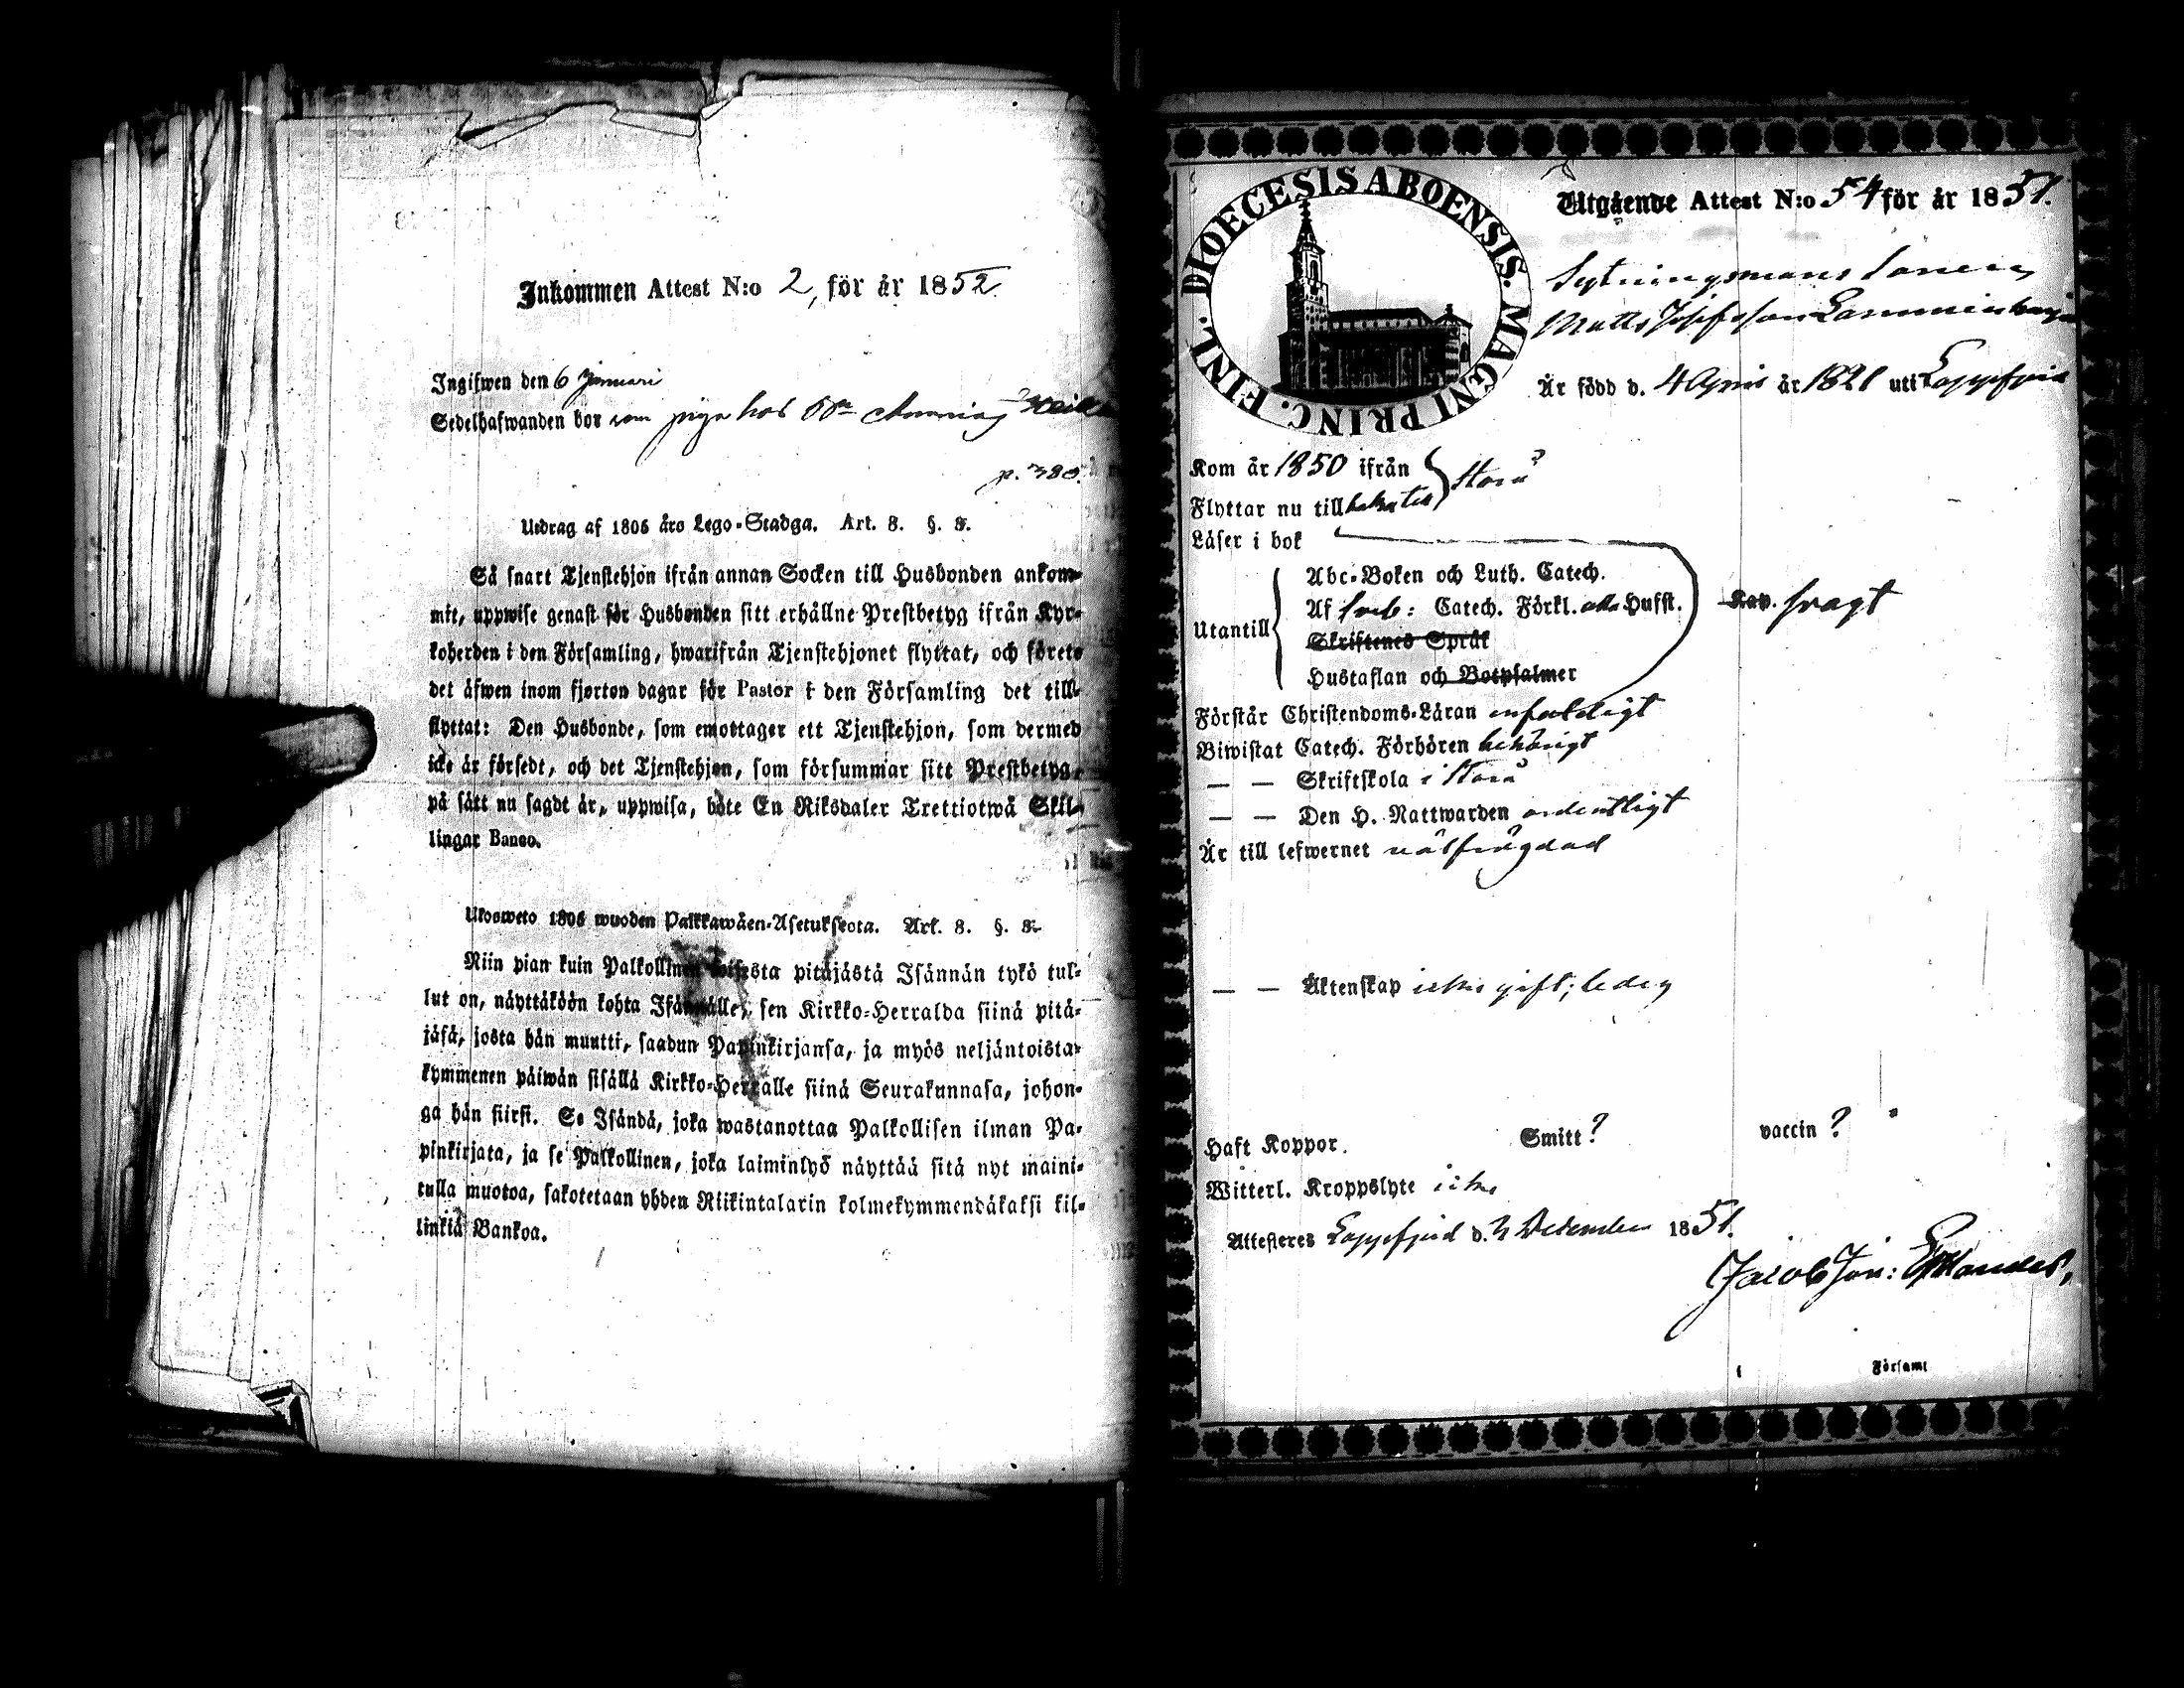 Inkommen Attest N:o 2, för år 1852.
Ingifwen den 6 Januari
Sedelhafwanden bor som piga hos
p. 380.
Utdrag af 1805 års Lego-Stadga. Art. 8. §. 8.
Så snart Tjenstehjon ifrån annan Socken till Husbonden ankom-
mit, uppwise genast för Husbonden sitt erhållne Prestbetyg ifrån Kyr-
koherden i den Församling, hwarifrån Tjenstehjonet flyttat, och förete
det äfwen inom fjorton dagar för Pastor i den Församling det till-
flyttat: Den Husbonde, som emottager ett Tjenstehjon, som dermed
icke är försedt, och det Tjenstehjon, som försummar sitt Prestbetyg,
på sätt nu sagdt är, uppwisa, böte En Riksdaler Trettiotwå Skil-
lingar Banco.
Ulosweto 1805 wuoden Palkkawäen-Asetuksesta. Art. 8. §. 8.
Niin pian kuin Palkollinen toisesta pitäjästä Isännän tykö tul-
lut on, näyttäköön kohta Isännälle, sen Kirkko-Herralda siinä pitä-
jäsä, josta hän muutti, saadun Papinkirjansa, ja myös neljäntoista-
kymmenen päiwän sisällä Kirkko-Herralle siinä Seurakunnasa, johon-
ga hän siirsi. Se Isändä, joka wastanottaa Palkollisen ilman Pa-
pinkirjata, ja se Palkollinen, joka laiminlyö näyttää sitä nyt maini-
tulla muotoa, sakotetaan yhden Riikintalarin kolmekymmendäkaksi kil-
linkiä Bankoa.
DIOECESIS ABOENSIS. MAGNI PRINC. FINL.
Utgående Attest N:o 54 för år 1851.
Sytningsmans sonen
Matts Josefsson
Är född d. 4 April år 1821 uti Lappfjerd
Kom år 1850 ifrån
Storå
Flyttar nu till
Läser i bok
Utantill
Abc-Boken och Luth. Catech.
Af Sveb: Catech. Förkl. Husst.
Skriftenes Språk
Hustaflan och Botpsalmer
svagt
Förstår Christendoms-Läran enfaldigt
Biwistat Catech. Förhören behörigt
— — Skriftskola i Storå
— — Den H. Nattwarden ordentligt
Är till lefwernet välfrägdad
— — Äktenskap icke gift; ledig
Haft Koppor. Smitt? vaccin?
Witterl. Kroppslyte icke
Attesteres Lappfjerd d. 3 December 1851.
Jacob Jon:
Församl